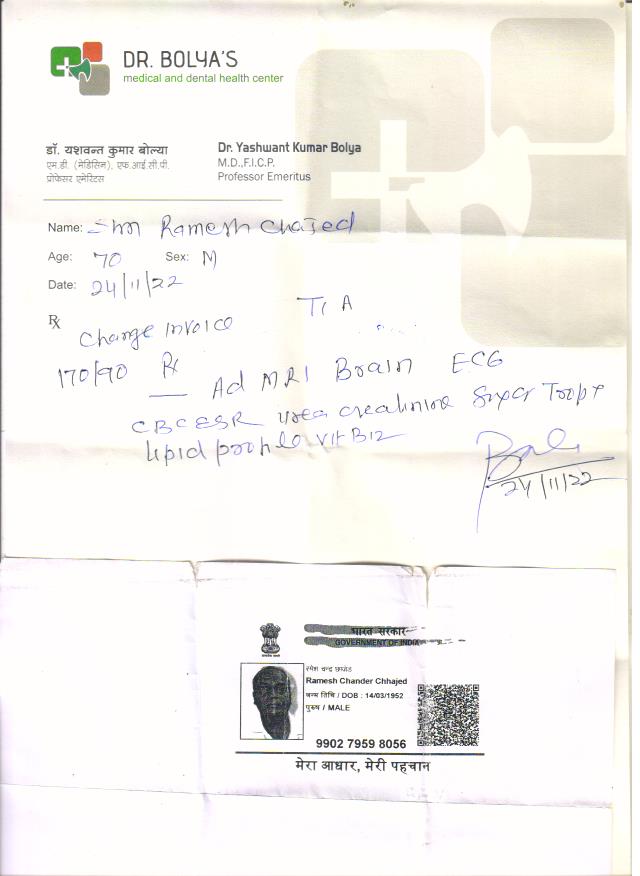 DR. BOLYA'S
medical and dental health center
डॉ. यशवन्त कुमार बोल्या
एम.डी. (मेडिसिन), एफ.आई.सी.पी.
प्रोफेसर एमेरिटस
Dr. Yashwant Kumar Bolya
M.D.,F.I.C.P.
Professor Emeritus
Name: Shri Ramesh Chajed
Age: 70 Sex: M
Date: 24/11/22
TIA
Rx Change Invoice
170/90 Rx
Ad MRI Brain ECG
CBC ESR Urea Creatinine Sugar
Lipid profile Vit B12
24/11/22
भारत सरकार
GOVERNMENT OF INDIA
रमेश चन्द्र छाजेड
Ramesh Chander Chhajed
जन्म तिथि / DOB : 14/03/1952
पुरुष / MALE
9902 7959 8056
मेरा आधार, मेरी पहचान